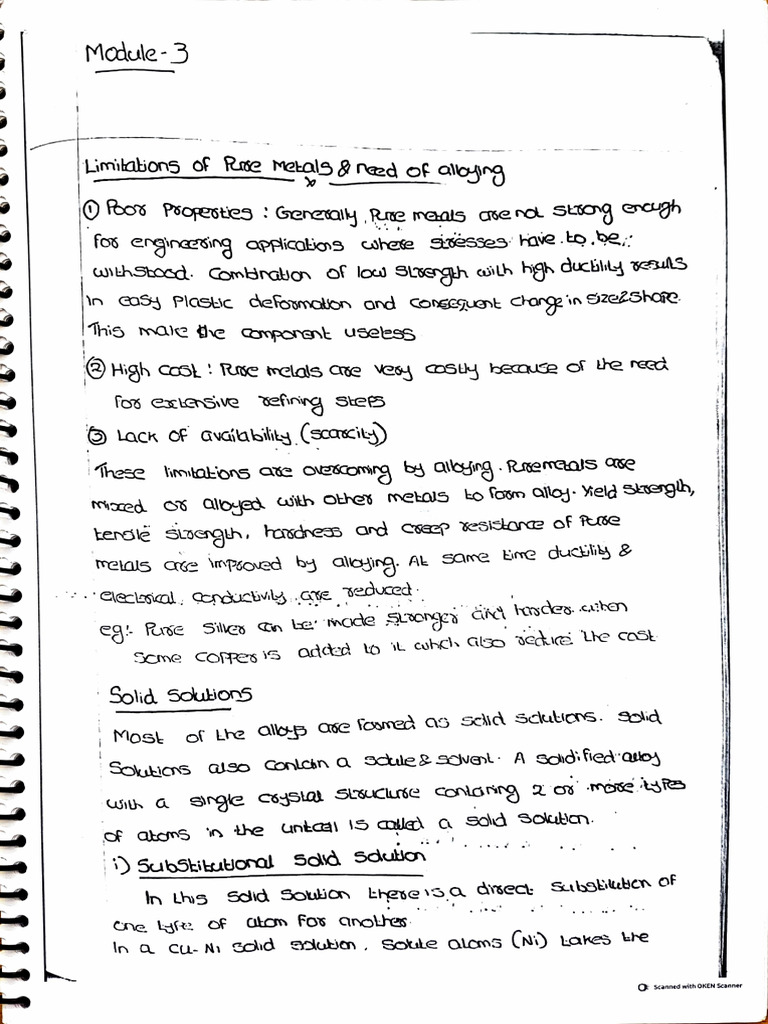 Module - 3
Limitations of Pure Metals & need of alloying
① Poor Properties : Generally, Pure metals are not strong enough
for engineering applications where stresses have to be
withstood. Combination of low strength with high ductility results
in easy Plastic deformation and consequent change in size & shape.
This make the component useless
② High cost : Pure metals are very costly because of the need
for extensive refining steps
③ Lack of availability (scarcity)
These limitations are overcoming by alloying. Pure metals are
mixed or alloyed with other metals to form alloy. Yield strength,
tensile strength, hardness and creep resistance of Pure
metals are improved by alloying. At same time ductility &
electrical conductivity are reduced.
eg:- Pure silver can be made stronger and harder when
some copper is added to it which also reduce the cost
Solid Solutions
Most of the alloys are formed as solid solutions. Solid
Solutions also contain a solute & solvent. A solidified alloy
with a single crystal structure containing 2 or more types
of atoms in the unitcell is called a solid solution.
i) Substitutional solid solution
In this solid solution there is a direct substitution of
one type of atom for another
In a Cu-Ni solid solution, solute atoms (Ni) takes the
Scanned with OKEN Scanner